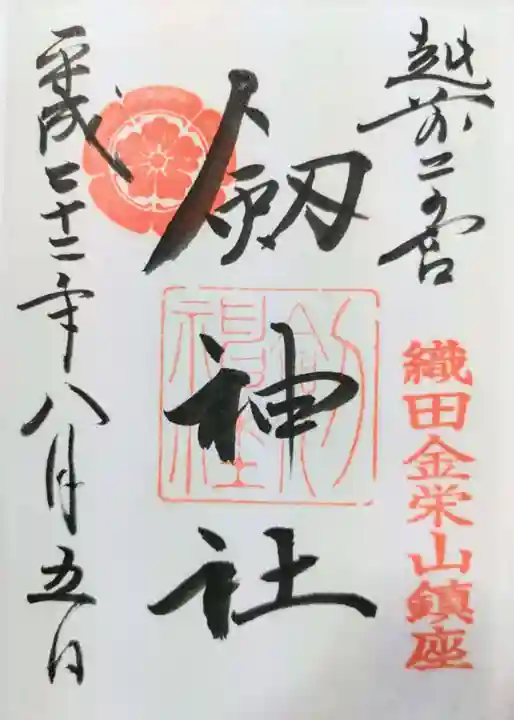 越前二の宮
織田金栄山鎮座
劔神社
平成二十二年八月五日